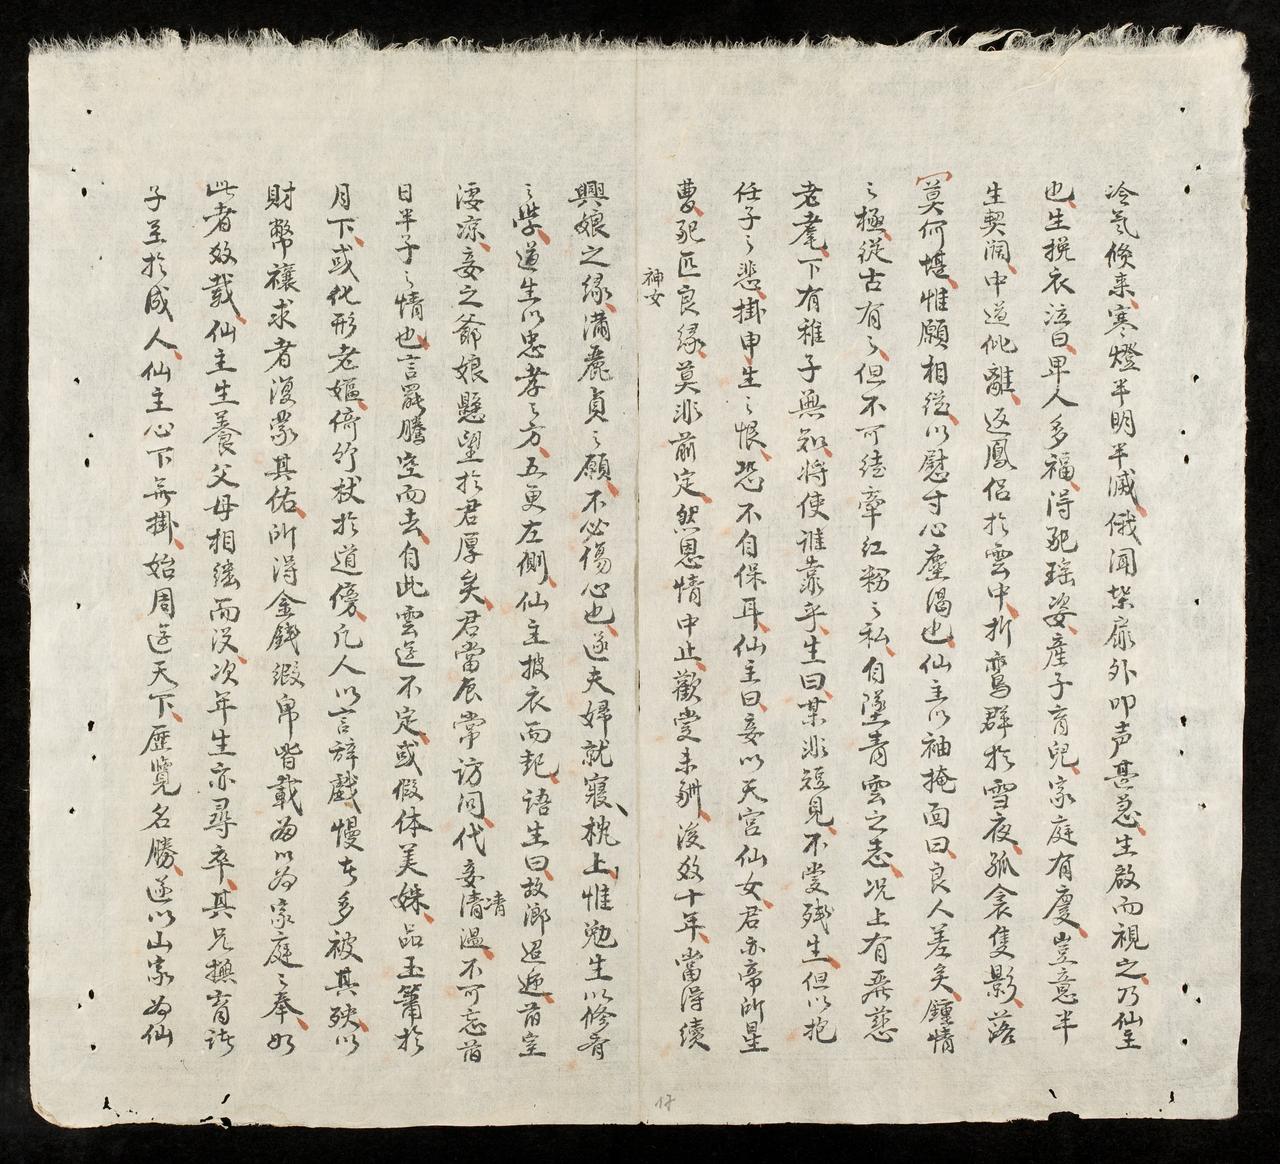 冷気倏来寒燈半明半滅俄闻柴扉外叩声甚急生啟而視之乃仙主
也生挽衣泣曰卑人多福得配瑶姿産子育兒家庭有慶豈意半
生契闊中道仳離返鳳侣於雲中折鸞群於雪夜孤衾隻影落
莫何堪惟願相從以慰寸心塵渴也仙主以袖掩面曰良人差矣鍾情
之極從古有之但不可綣牽紅粉之私自墜青雲之志况上有吾慈
老耄下有稚子無知将使誰靠乎生曰某非短見不愛残生但以抱
任子之悲掛申生之恨恐不自保耳仙主曰妾以天宮仙女君亦帝所星
曹配匹良緣莫非前定然恩情中止歡愛未酬後数十年當得續
神女
興娘之緣满麗貞之願不必傷心也遂夫婦就寢枕上惟勉生以修齐
之學道生以忠孝之方五更左側仙主披衣而起語生曰故鄉迢遞首室
凄凉妾之爺娘懸望於君厚矣君當辰常访问代妾清温不可忘首
清
日半子之情也言罷騰空而去自此雲遊不定或假体美姝品玉簫於
月下或化形老嫗倚竹杖於道傍凡人以言辞戲慢者多被其殃以
財幣禳求者復蒙其佑所得金銭緞帛皆載為以為家庭之奉如
此者数載仙主生養父母相継而没次年生亦尋卒其兄撫育诸
子至於成人仙主心下無掛始周遊天下歷覽名勝遂以山家為仙
17